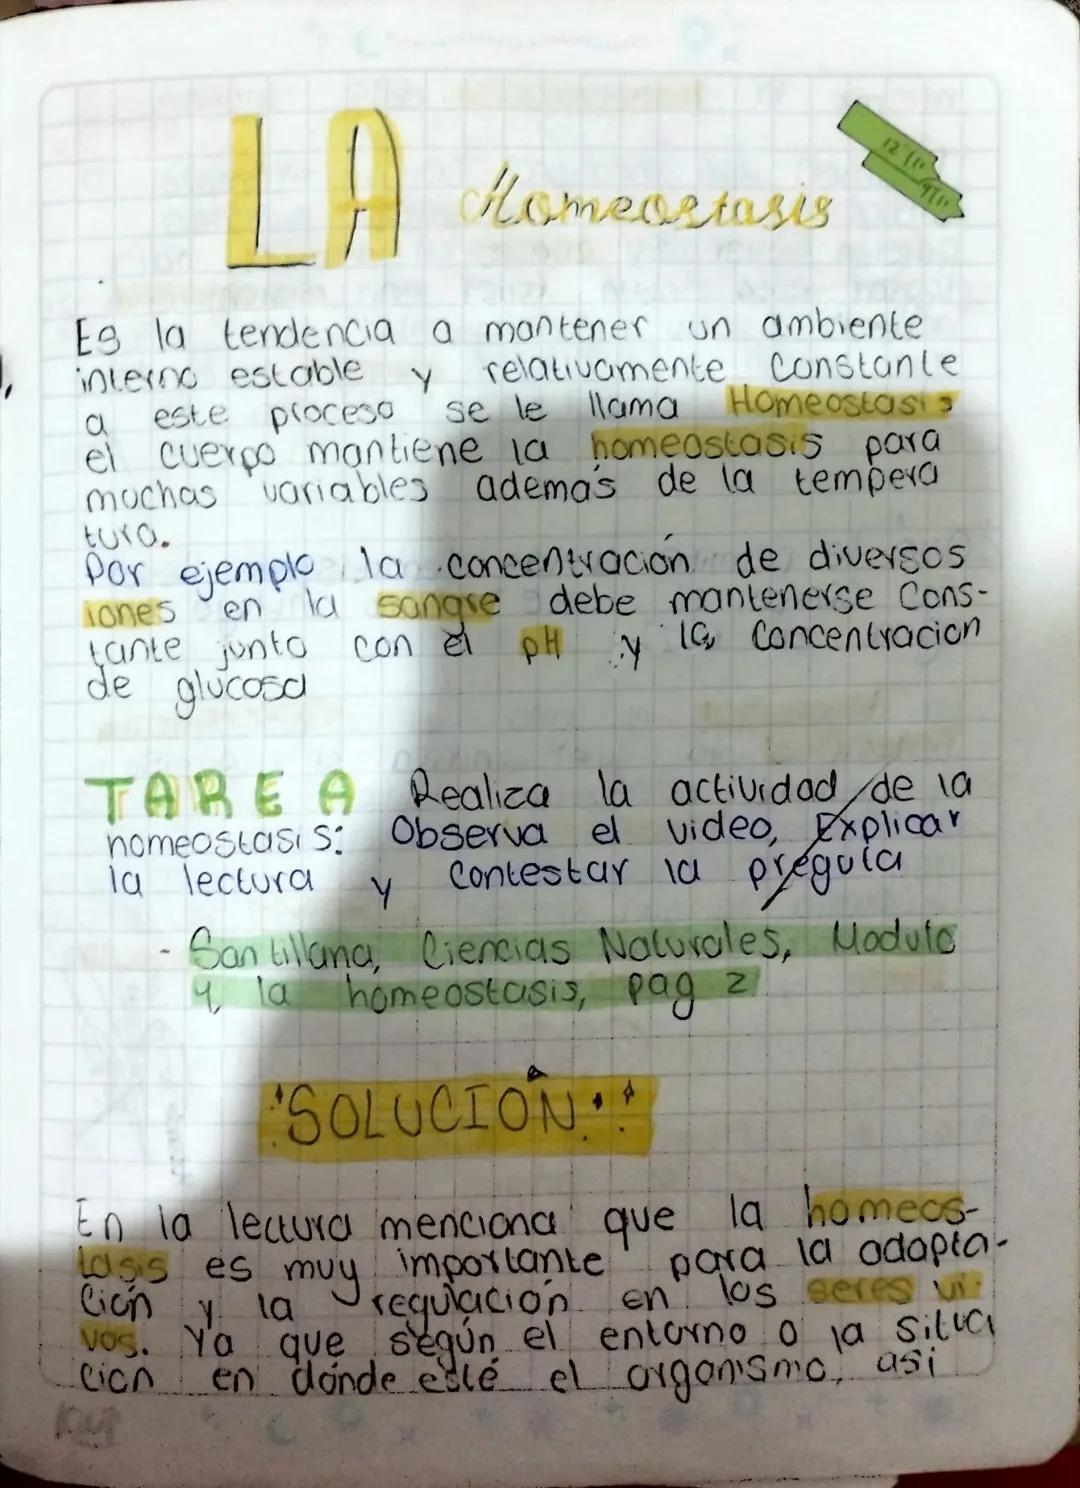 LA Homeostasis
Es la tendencia a mantener un ambiente
interno estable y relativamente constante
a este proceso se le llama Homeostasis
el cuerpo mantiene la homeostasis para
muchas variables además de la tempera
tura.
Por ejemplo la concentración de diversos
iones en la sangre debe mantenerse cons-
tante junto con el pH y la concentracion
de glucosa
TAREA Realiza la actividad de la
homeostasis: Observa el video, Explicar
la lectura y contestar la preguta
- Santillana, Ciencias Naturales, Modulo
4, la homeostasis, pag 2
SOLUCIÓN
En la lectura menciona que la homeos-
tasis es muy importante para la adapta-
ción y la regulación en los seres vi-
vos. Ya que según el entorno o la situa
cion en dónde esté el organismo, asi